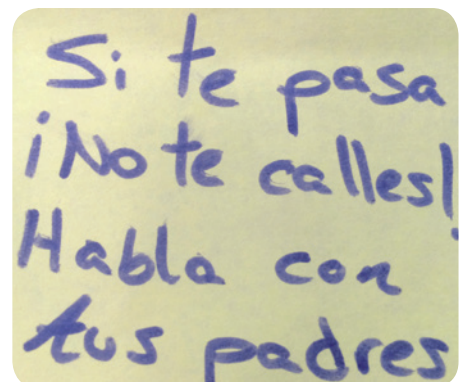 Si te pasa
¡No te calles!
Habla con
tus padres